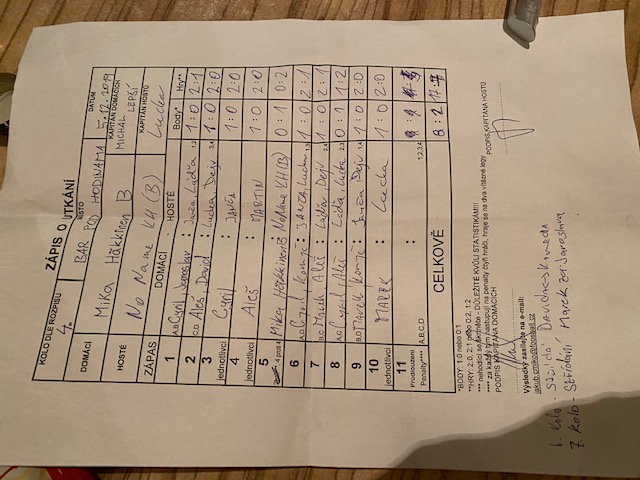 ZÁPIS O UTKÁNÍ
KOLO DLE ROZPISU MÍSTO DATUM
4. BAR POD HODINAMA 5.12.2019
DOMÁCÍ Mika Häkkinen B KAPITÁN DOMÁCÍCH MICHAL LEPŠÍ
HOSTÉ No Name KH (B) KAPITÁN HOSTŮ Lucka
ZÁPAS DOMÁCÍ HOSTÉ Body* Hry**
1 A,B Cyril Jaroslav : Láďa 1,2 1:0 2:1
2 C,D Aleš David : Lucka Dejv 3,4 1:0 2:0
3 jednotlivci Cyril : 1:0 2:0
4 jednotlivci Aleš : MARTIN 1:0 2:0
5 4 proti 4 Mika Häkkinen B : NoName KH(B) 0:1 0:2
6 A,B Cyril : Lucka 1,3 1:0 2:1
7 B,D Marek Aleš : Láďa Dejv 2,4 1:0 2:1
8 A,C Cyril Aleš : Láďa Lucka 2,3 0:1 1:2
9 B,D Marek : Dejv 1,4 1:0 2:0
10 jednotlivci MAREK : Lucka 1:0 2:0
11 Prodloužení :
Penalty**** A,B,C,D 1,2,3,4
CELKOVĚ 8:2
*BODY: 1:0 nebo 0:1
**HRY: 2:0, 2:1 nebo 0:2, 1:2
*** nehodící se škrtněte - DŮLEŽITÉ KVŮLI STATISTIKÁM!!!
**** za každý tým zastupují na penalty čtyři hráči, hraje se na dva vítězné legy
PODPIS KAPITÁNA DOMÁCÍCH PODPIS KAPITÁNA HOSTŮ
Výsledky zasílejte na e-mail:
6. Kolo - Střídá David
7. Kolo - Střídání Marek za Jaroslava